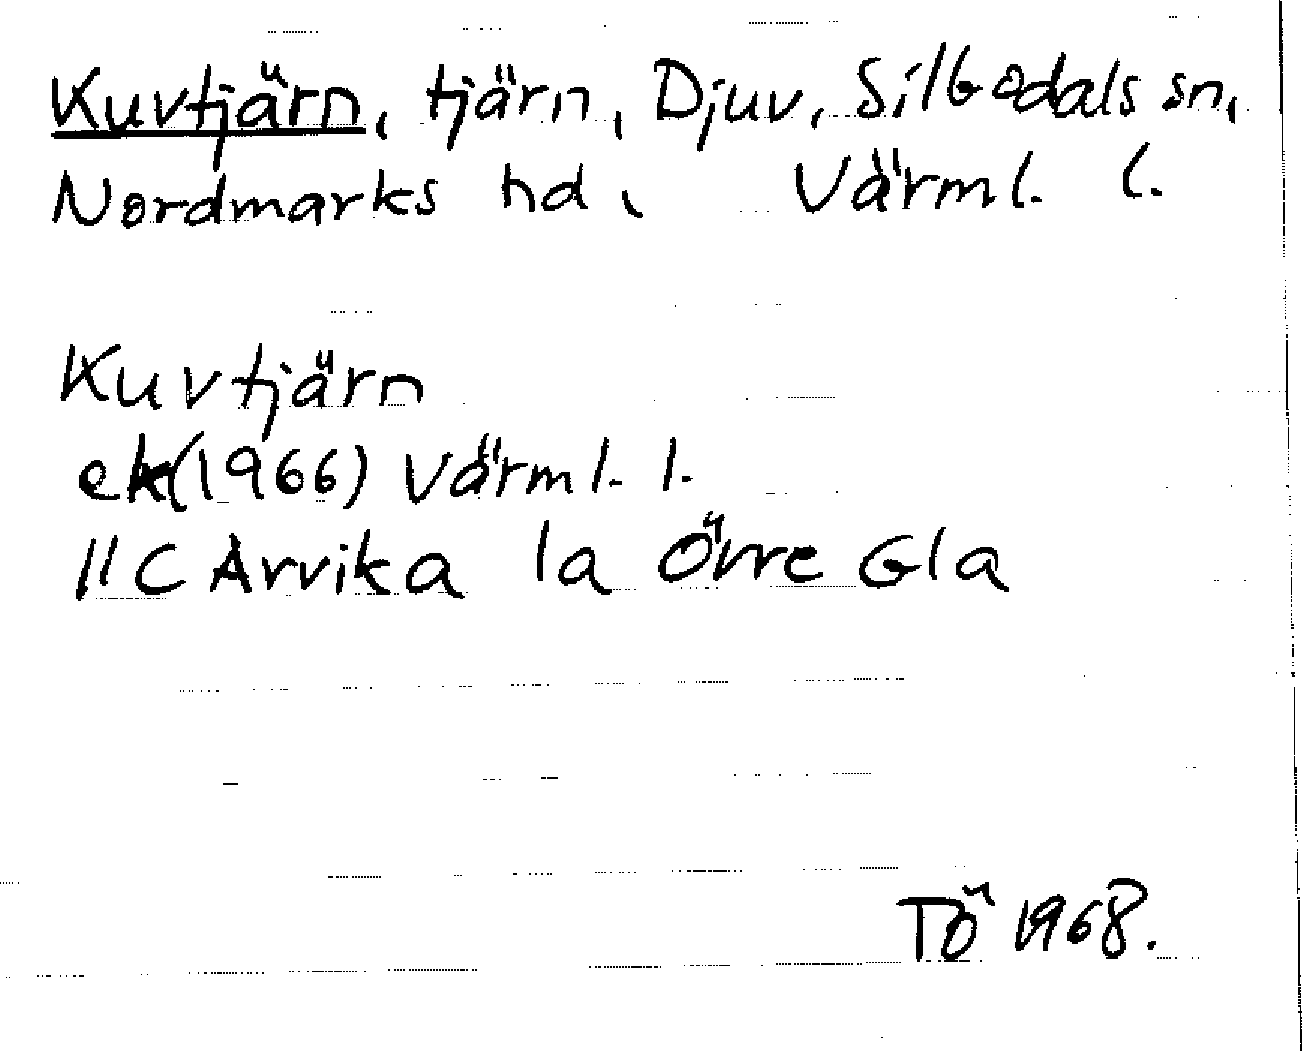 Kuvtjärn, tjärn, Djuv, Silbodals sn,
Nordmarks hd, Värml. l.
Kuvtjärn
ek(1966) Värml. l.
11C Arvika 1a Övre Gla
TÖ 1968.